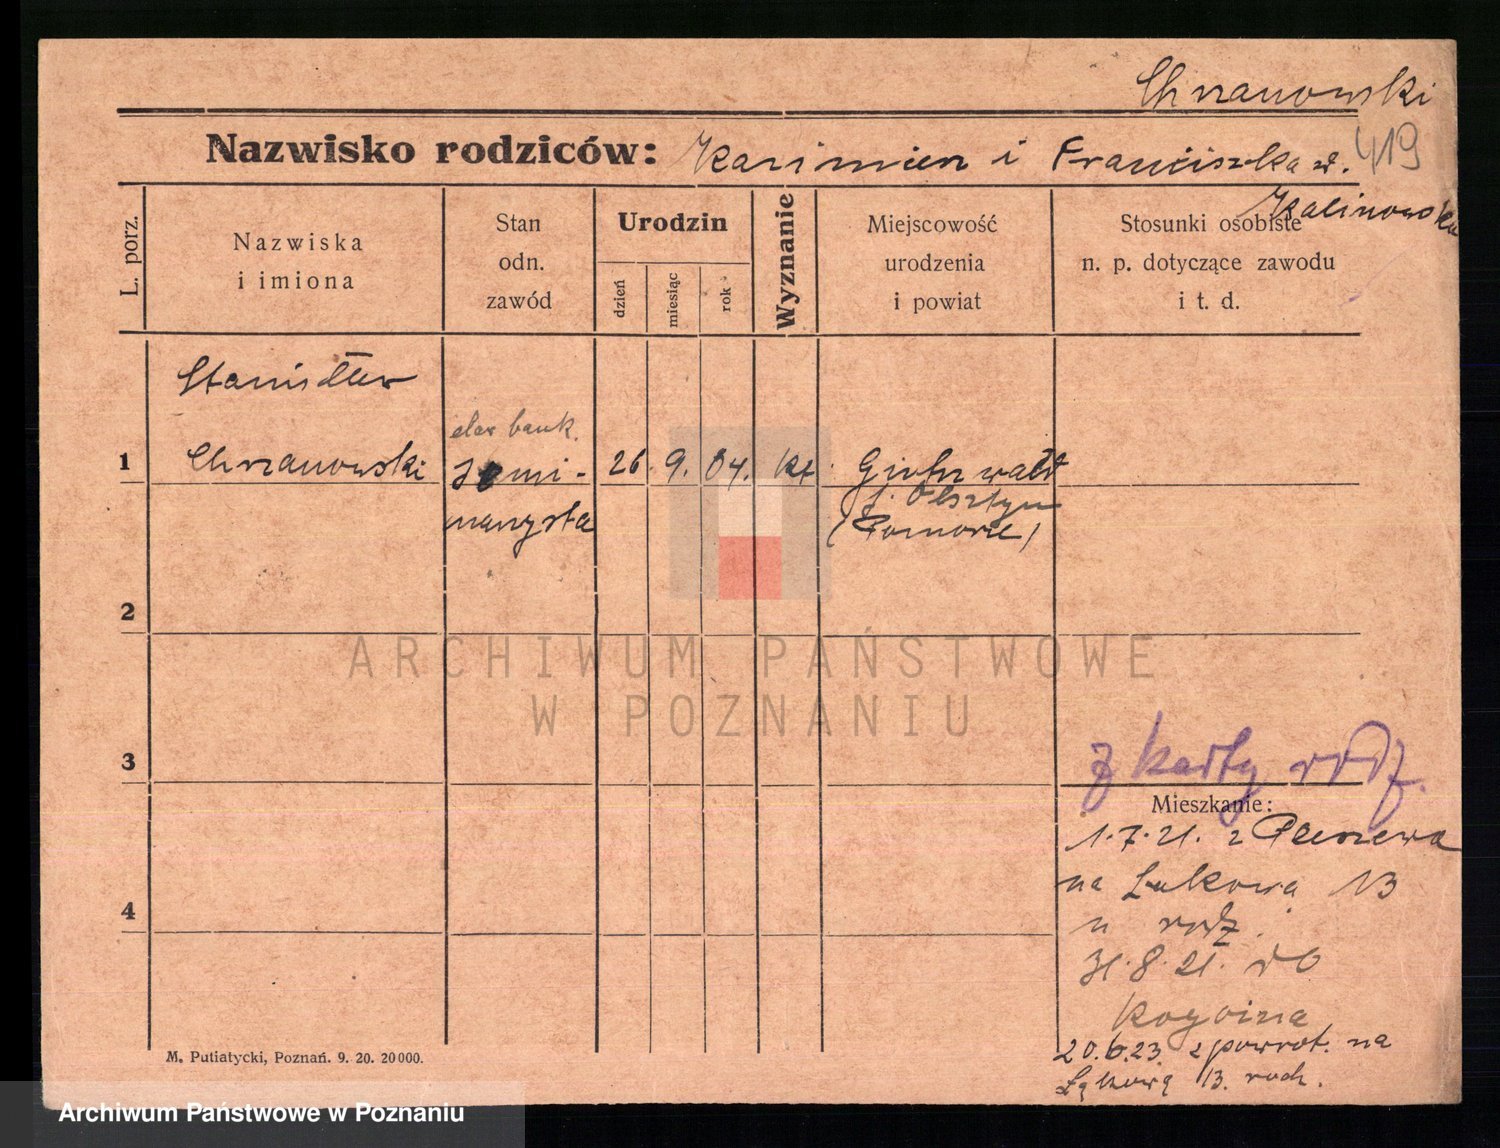 Chrzanowski
419
Nazwisko rodziców: Kazimierz i Franciszka z.
Kalinowska
L. porz.
Nazwiska
i imiona
Stan
odn.
zawód
Urodzin
dzień
miesiąc
rok
Wyznanie
Miejscowość
urodzenia
i powiat
Stosunki osobiste
n. p. dotyczące zawodu
i t. d.
Stanisław
elew bank.
1 Chrzanowski 26. 9. 04. kt.
p. Olsztyn
(Pomorze)
2
ARCHIWUM PAŃSTWOWE
W POZNANIU
z karty rodz.
3
Mieszkanie:
1.7.21. z Pleszewa
na Łąkowa 13
4
u rodz.
31.8.21. do
Rogoźna
20.6.23 z powrot. na
Łąkową 13. rodz.
M. Putiatycki, Poznań. 9. 20. 20000.
Archiwum Państwowe w Poznaniu